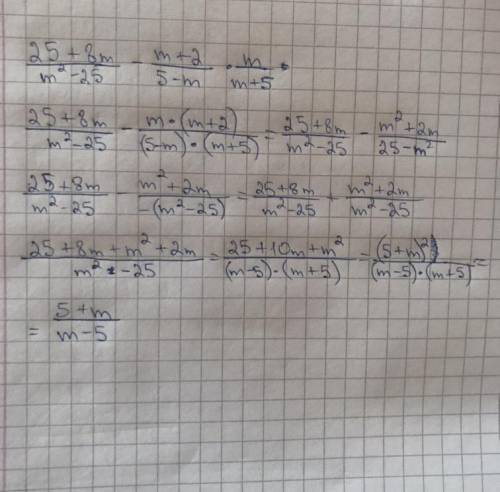 (25+8m)/(m²-25) - (m+2)/(5-m) · m/(m+5)
(25+8m)/(m²-25) - (m·(m+2))/((5-m)·(m+5)) = (25+8m)/(m²-25) - (m²+2m)/(25-m²)
(25+8m)/(m²-25) - (m²+2m)/(-(m²-25)) = (25+8m)/(m²-25) + (m²+2m)/(m²-25)
(25+8m+m²+2m)/(m²-25) = (25+10m+m²)/((m-5)·(m+5)) = (5+m)²/((m-5)·(m+5)) =
= (5+m)/(m-5)